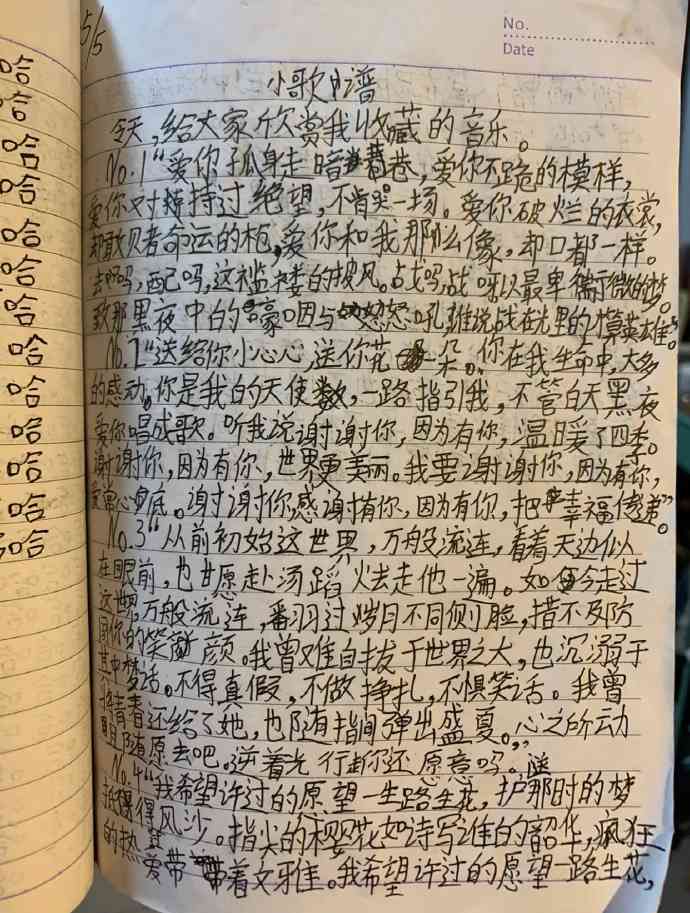 5/5
No.
Date
哈
哈
哈
哈
哈
哈
哈
哈
哈
哈
哈
哈
哈
小歌谱
今天,给大家欣赏我收藏的音乐。
No.1“爱你孤身走暗巷,爱你不跪的模样,
爱你对持过绝望,不肯哭一场。爱你破烂的衣裳,
却敢贝者命运的枪,爱你和我那么像,却口都一样。
去吗,配吗,这褴褛的披风。占戈吗,战呀以最卑微的梦。
致那黑夜中的嚎咽与怒吼,谁说战在光里的才算英雄”。
No.2“送给你小心心送你花一朵。你在我生命中,太多
的感动。你是我的天使,一路指引我,不管白天黑夜
爱你唱成歌。听我说谢谢你,因为有你,温暖了四季。
谢谢你,因为有你,世界更美丽。我要谢谢你,因为有你,
爱常心底。谢谢你感谢有你,因为有你,把幸福传递”。
No.3“从前初始这世界,万般流连,看着天边似
在眼前,也甘愿赴汤蹈火去走他一遍。如今走过
这世,万般流连,番羽过岁月不同侧脸,措不及防
闯你的笑颜。我曾难自拔于世界之大,也沉溺于
其中梦话。不得真假,不做挣扎,不惧笑话。我曾
将青春还给了她,也随指间弹出盛夏。心之所动
随原去吧。逆着光行走你还愿意吗。”
No.4“我希望许过的愿望一生路生花,护那时的梦
抵得风沙。指尖的樱花如诗写谁的韶华,疯狂
的热爱带着文雅。我希望许过的愿望一路生花,